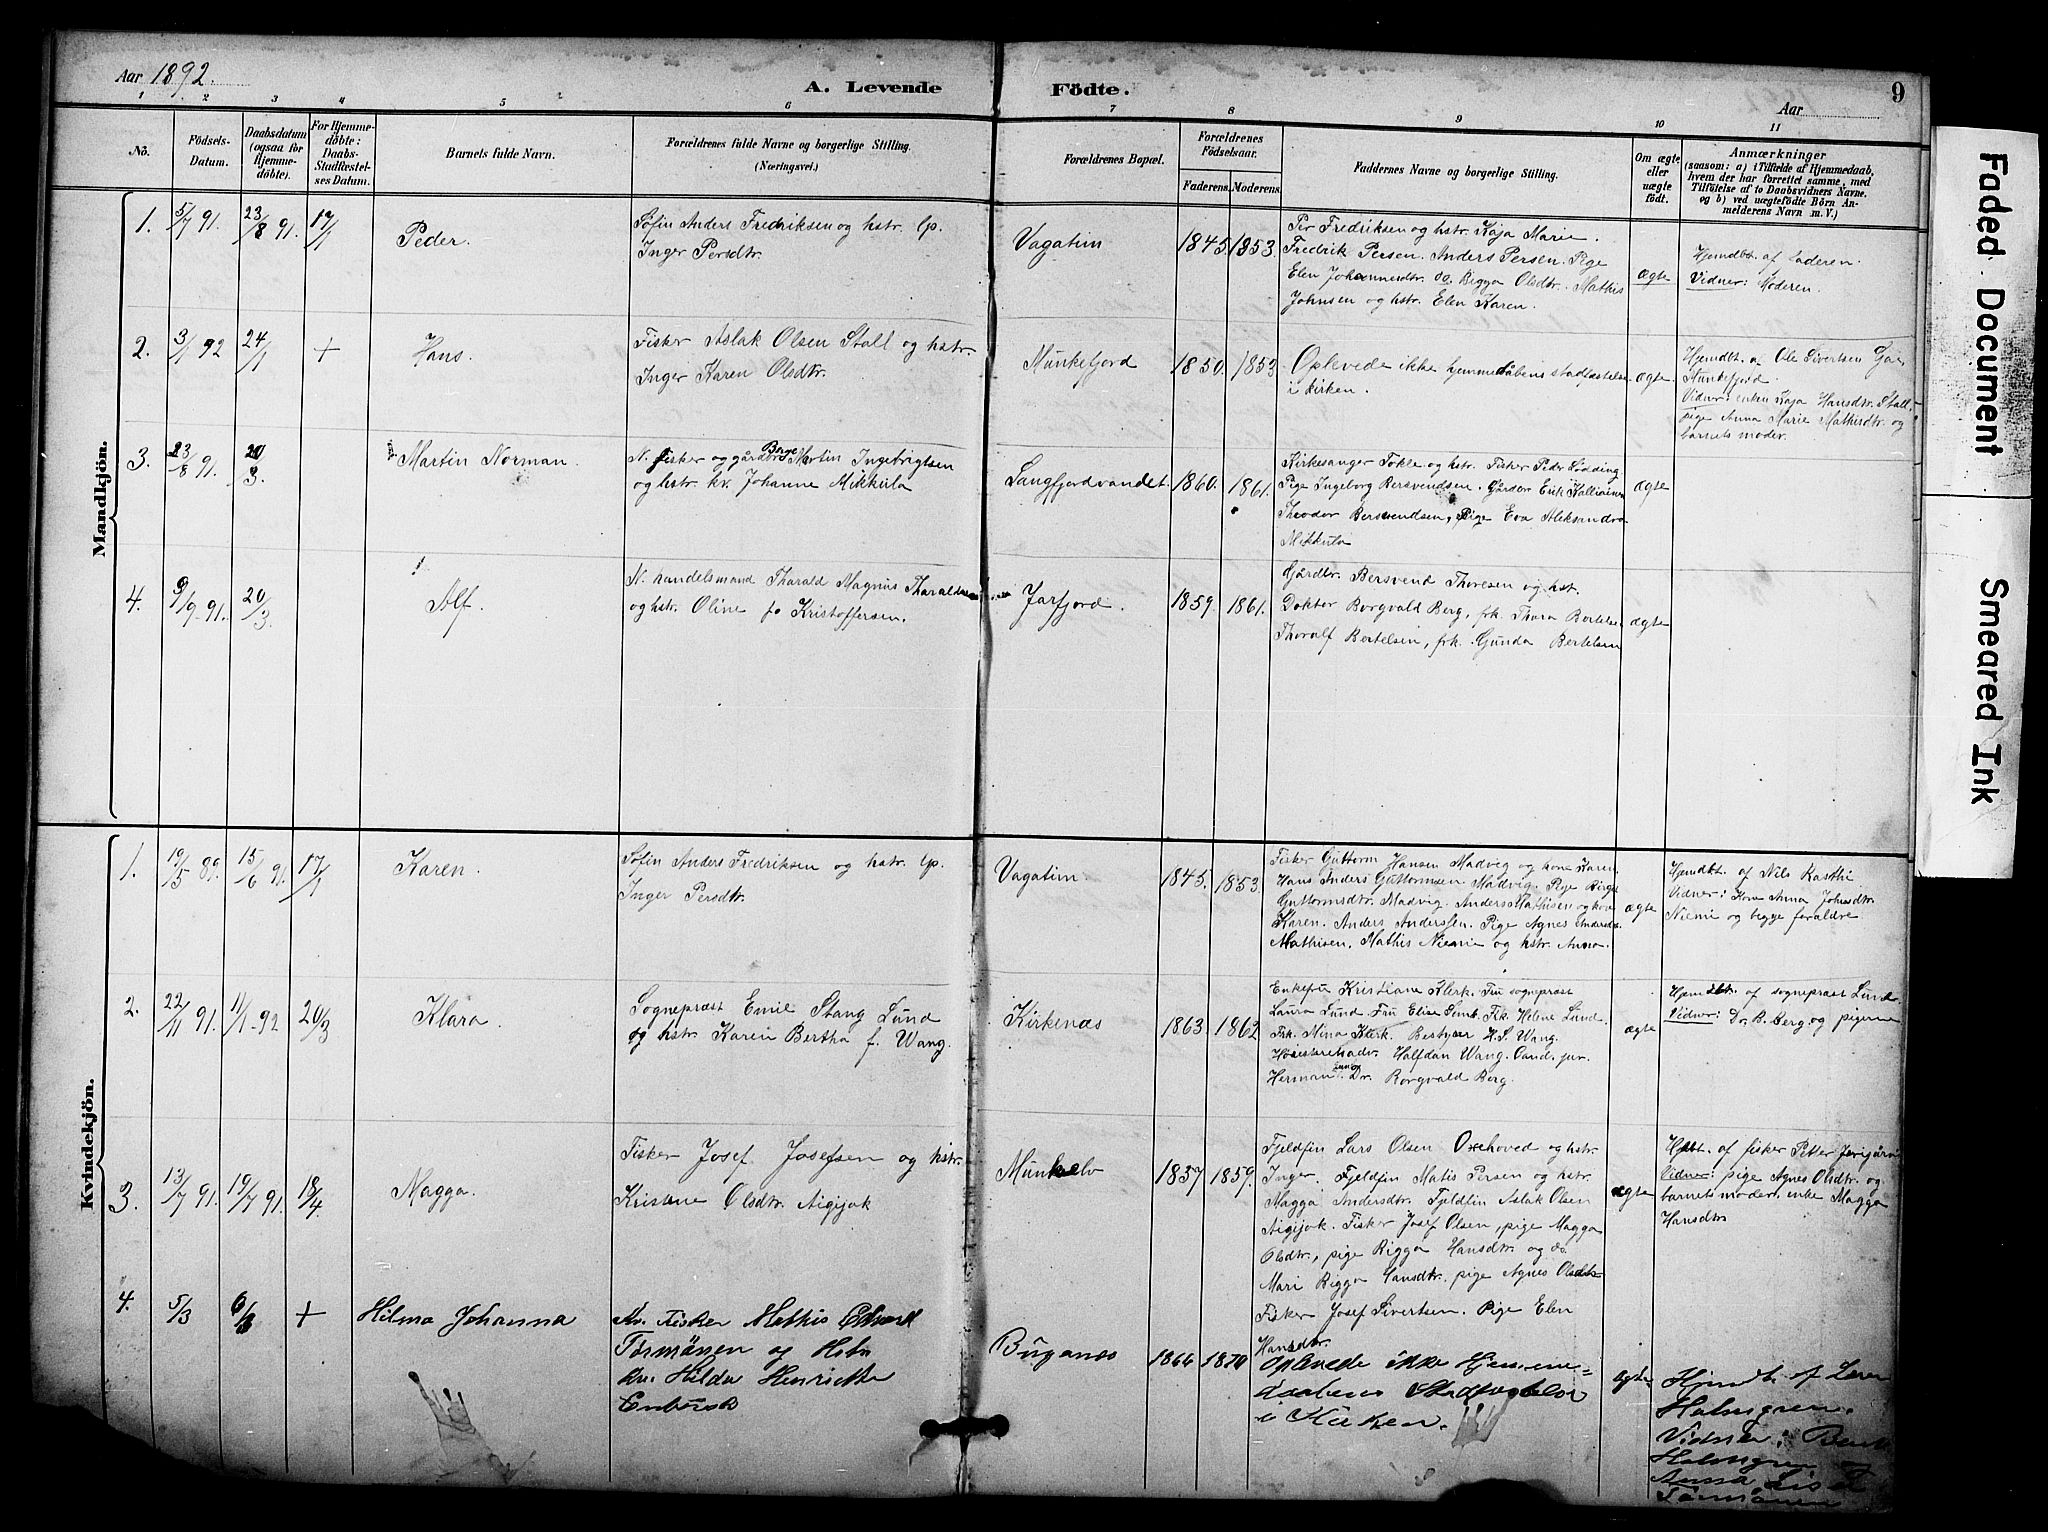 Aar 1892.
A. Levende Födte.
Aar
9
1 2 3 4 5 6 7 8 9 10 11
No.
Födsels-
Datum.
Daabsdatum
(ogsaa for
Hjemme-
döbte).
For Hjemme-
döbte:
Daabs-
Stadfæstel-
ses Datum.
Barnets fulde Navn.
Forældrenes fulde Navne og borgerlige Stilling.
(Næringsvei.)
Forældrenes Bopæl.
Forældrenes
Födselsaar.
Faderens. Moderens.
Faddernes Navne og borgerlige Stilling.
Om ægte
eller
uægte
födt.
Anmærkninger
(saasom: a) i Tilfælde af Hjemmedaab,
hvem der har forrettet samme, med
Tilföielse af to Daabsvidners Navne.
og b) ved uægtefödte Börn An-
melderens Navn m. V.)
Mandkjön.
1.
5/7 91.
23/8 91.
17/1
Peder.
Søfin Anders Fredriksen og hstr. lp.
Inger Persdtr.
Vagatim
1845. 1853.
Per Fredriksen og hstr. Kaja Marie.
Fredrik Persen. Anders Persen. Pige
Elen Johannesdtr. do. Bigga Olsdtr. Mathis
Johnsen og hstr. Elen Karen.
ægte
Hjemdbt. af Faderen.
Vidner: Moderen.
2.
3/1 92
24/1
+
Hans.
Fisker Aslak Olsen Stall og hstr.
Inger Karen Olsdtr.
Munkefjord
1850. 1853
Oplevede ikke hjemmedåbens stadfæstelse
i kirken.
ægte
Hjemdbt. a Ole Sivertsen
Munkefjord.
Vidner: enken Kaja Hansdtr. Stall.
pige Anna Marie Mathisdtr. og
barnets moder.
3.
23/8 91.
20/3.
Martin Norman.
N. fisker og gårdbr. Berge Martin Ingebrigtsen
og hstr. kv. Johanne Mikkula
Langfjordvandet.
1860. 1861.
Kirkesanger Tokle og hstr. Fisker Peder
Pige Ingeborg Bersvendsen. Gårdbr. Erik
Theodor Bersvendsen, pige Eva Aleksandra
Mikkula
ægte
4.
9/9 91.
20/3.
Alf.
N. handelsmand Tharald Magnus Tharaldsen
og hstr. Oline fø Kristoffersen.
Jarfjord.
1859. 1861.
Gårdbr. Bersvend Thoresen og hst.
Doktor Borgvald Berg, frk. Thora Bertelsen
Thoralf Bertelsen, frk. Gunda Bertelsen
ægte
Kvindekjön.
1.
19/5 89.
15/6 91.
17/1
Karen.
Søfin Anders Fredriksen og hstr. lp.
Inger Persdtr.
Vagatim.
1845. 1853.
Fisker Guttorm Hansen Madvig og kone Karen
Hans Anders Guttormsen Madvig. Pige Birgit
Guttormsdtr. Madvig. Anders Mathisen og kone
Karen. Anders Anderssen. Pige Agnes Andersdtr.
Mathisen. Mathis Niemi og hstr. Anna.
ægte
Hjemdbt. af Nils
Vidner: Kone Anna Johnsdtr.
Niemi og begge forældre.
2.
22/11 91.
11/1-92
20/3
Klara.
Sogneprest Emil Stang Lund
og hstr. Karen Bertha f. Wang.
Kirkenæs
1863. 1862
Enkefru Kristiane Klerk. Fru sogneprest
Laura Lund Fru Elise Frk. Helene Lund.
Frk. Nina Klerk. Bestyrer H. S. Wang.
Høiesteretsadv. Halfdan Wang. Cand. jur.
Herman Lund Dr. Borgvald Berg.
ægte
Hjemdbt. af sogneprest Lund.
Vidner: Dr. B. Berg og pigerne
3.
13/7 91.
19/7 91.
18/4
Magga.
Fisker Josef Josefsen og hstr.
Kristene Olsdtr. Aigijok
Munkelv
1837 1859.
Fjeldfin Lars Olsen Oxehoved og hstr.
Inger. Fjeldfin Matis Persen og hstr.
Magga Andersdtr. Fjeldfin Aslak Olsen
Aigijok. Fisker Josef Olsen, pige Magga
Olsdtr., pige Bigga Hansdtr. og do
Mari Bigga Hansdtr. pige Agnes Olsdtr.
Fisker Josef Sivertsen. Pige Elen
Hansdtr.
ægte
Hjdbt. af fisker Petter
Vidner: pige Agnes Olsdtr. og
barnets moder, enke Magga
Hansdtr
4.
5/3
6/3
+
Hilma Johanna
Kv. Fisker Mathis Edvard
Tormänen og Hstr.
kv. Hilda Henriette
Enbusk
Bugønes
1866 1870
Oplevede ikke Hjemme-
daabens Stadfæstelse
i Kirken.
ægte
Hjemdt. af
Holmgren.
Vidner:
Holmgren og
Anna
Tormänen
Faded Document
Smeared Ink